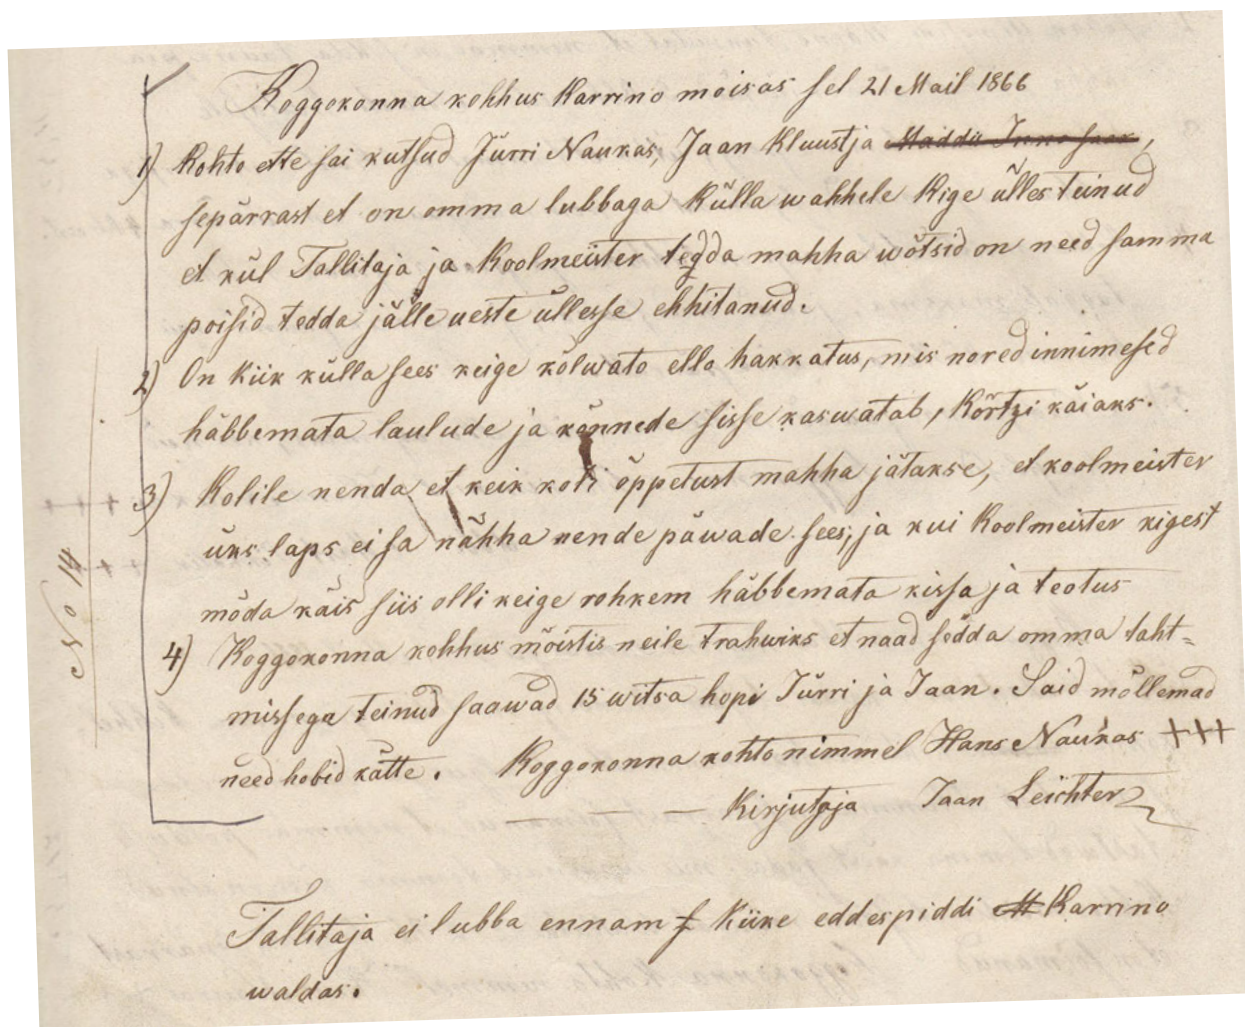 Koggokonna kohhus Karrino moisas sel 21 Mail 1866
1) Kohto ette sai kutsud Jürri Naukas, Jaan Kluust ja
sepärrast et on omma lubbaga Külla wahhele Kige ülles teinud
et kül Tallitaja ja Koolmeister tedda mahha wõtsid on need samma
poisid tedda jälle ueste üllesse ehhitanud.
2) On Kiik külla sees keige kõlwato ello hakkatus, mis nored innimesed
häbbemata laulude ja kõnnede sisse kaswatab, Kõrtzi käiaks.
3) Kolile nenda et keik koli öppetust mahha jätakse, et koolmeister
üks laps ei sa nähha nende päwade sees, ja kui Koolmeister kigest
möda käis siis olli keige rohkem häbbemata kissa ja teotus
No 14
4) Koggokonna kohhus mõistis neile trahwiks et naad sedda omma taht=
missega teinud saawad 15 witsa hopi Jürri ja Jaan. Said mõllemad
need hobid kätte. Koggokonna kohto nimmel Hans Naukas +++
Kirjutaja Jaan Leichter
Tallitaja ei lubba ennam Kiike eddespiddi Karrino
waldas.